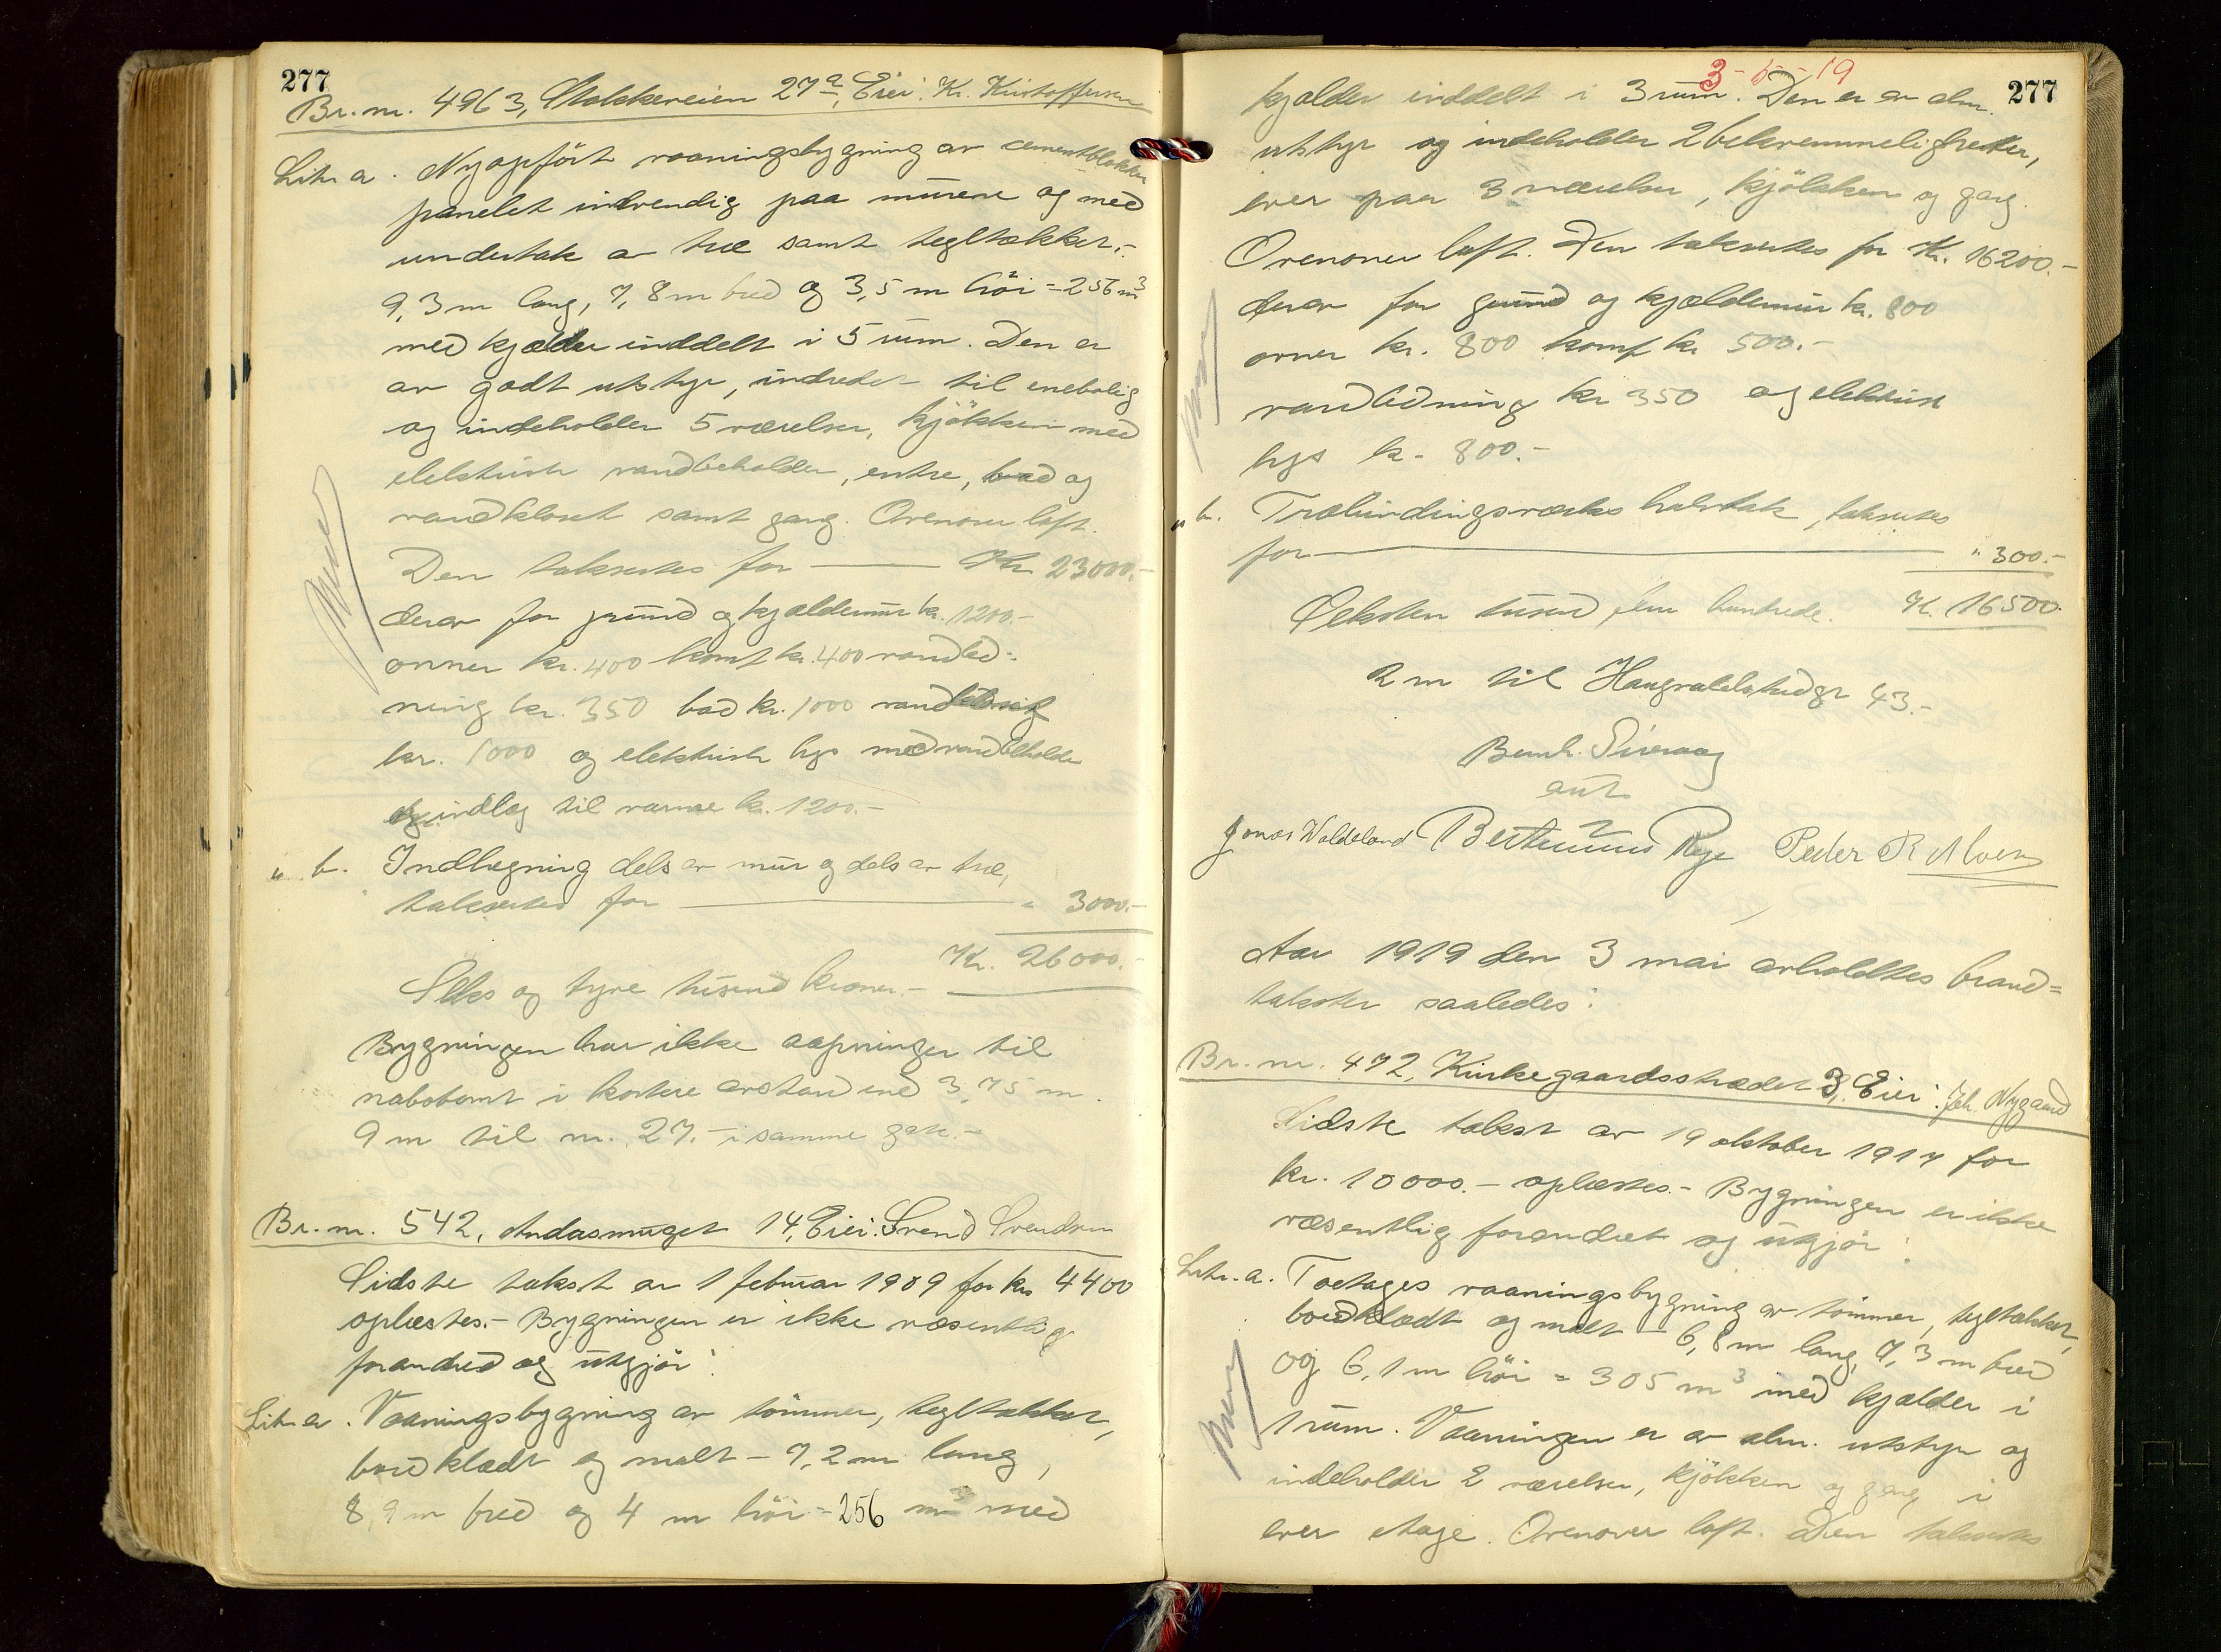 277
Br. nr. 4963, Stokkeveien 27a, Eier: Kr. Kristoffersen
Litr a. Nyopført vaaningsbygning av cementblokker
panelet indvendig paa murene og med
undertak av træ samt tegltækker.-
9,3 m lang, 7,8 m bred og 3,5 m høi = 256 m3
med kjælder inddelt i 5 rum. Den er
av godt utstyr, indredet til enebolig
og indeholder 5 værelser, kjøkken med
elektrisk vandbeholder, entre, bad og
vandkloset samt gang. Ovenover loft.
Den takseres for — Kr. 23000.-
derav for grund og kjældermur kr. 1200.-
ovner kr. 400 komf kr. 400 vandled-
ning kr. 350 bad kr. 1000 vandklosset
kr. 1000 og elektrisk lys med vandbeholder
og indlæg til varme kr. 1200.-
" b. Indhegning dels av mur og dels av træ,
takseres for — " 3000.-
Kr. 26000.-
Seks og tyve tusend kroner.-
Bygningen har ikke aapninger til
nabotomt i kortere avstand end 3,75 m.
9 m til nr. 27.- i samme gate.-
Br. nr. 542, Andasmuget 14, Eier: Svend Svendsen
Sidste takst av 1 februar 1909 for kr 4400
oplæstes.- Bygningen er ikke væsentlig
forandred og utgjør:
Litr a. Vaaningsbygning av tømmer, tegltækket,
bordklædt og malt - 7,2 m lang,
8,9 m bred og 4 m høi = 256 m3 med
3-5-19
277
kjælder inddelt i 3 rum. Den er av alm.
utstyr og indeholder 2 bekvemmeligheter,
hver paa 3 værelser, kjøkken og gang.
Ovenover loft. Den takseres for Kr. 16200.-
derav for grund og kjældermur kr. 800
ovner kr. 800 komf kr 500.-
vandledning kr 350 og elektrisk
lys kr. 800.-
" b. Træbindingsværks halvtak, takseres
for — " 300.-
Kr. 16500.
Seksten tusend fem hundrede.
2 m til Haugvaldstadgt 43.-
Bernh. Siveraag
aut
Jonas Waldeland Bertinius Rege Peder R Moen
Aar 1919 den 3 mai avholdtes brand=
takster saaledes:
Br. nr. 472, Kirkegaardsstrædet 3, Eier: Joh. Nygaard
Sidste takst av 19 oktober 1917 for
kr. 10000.- oplæstes.- Bygningen er ikke
væsentlig forandret og utgjør:
Litr. a. Toetages vaaningsbygning av tømmer, tegltækket,
bordklædt og malt - 6,8 m lang, 7,3 m bred
og 6,1 m høi = 305 m3 med kjælder i
1 rum. Vaaningen er av alm. utstyr og
indeholder 2 værelser, kjøkken og gang i
hver etage. Ovenover loft. Den takseres